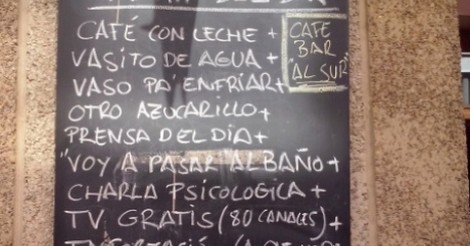 CAFÉ CON LECHE +
VASITO DE AGUA +
VASO PA' ENFRIAR +
OTRO AZUCARILLO +
PRENSA DEL DIA +
"VOY A PASAR AL BAÑO +
CHARLA PSICOLOGICA +
TV GRATIS (80 CANALES) +
CAFE
BAR
"AL SUR"